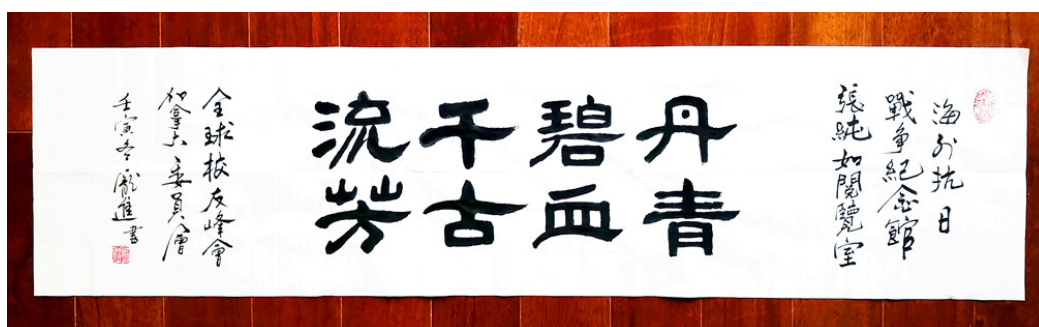 海外抗日
戰爭紀念館
張純如閱覽室
丹青
碧血
千古
流芳
全球校友峰會
加拿大委員會
壬寅冬 進書